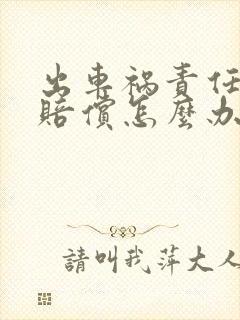 出車禍責任
賠償怎麼办
請叫我萍大人